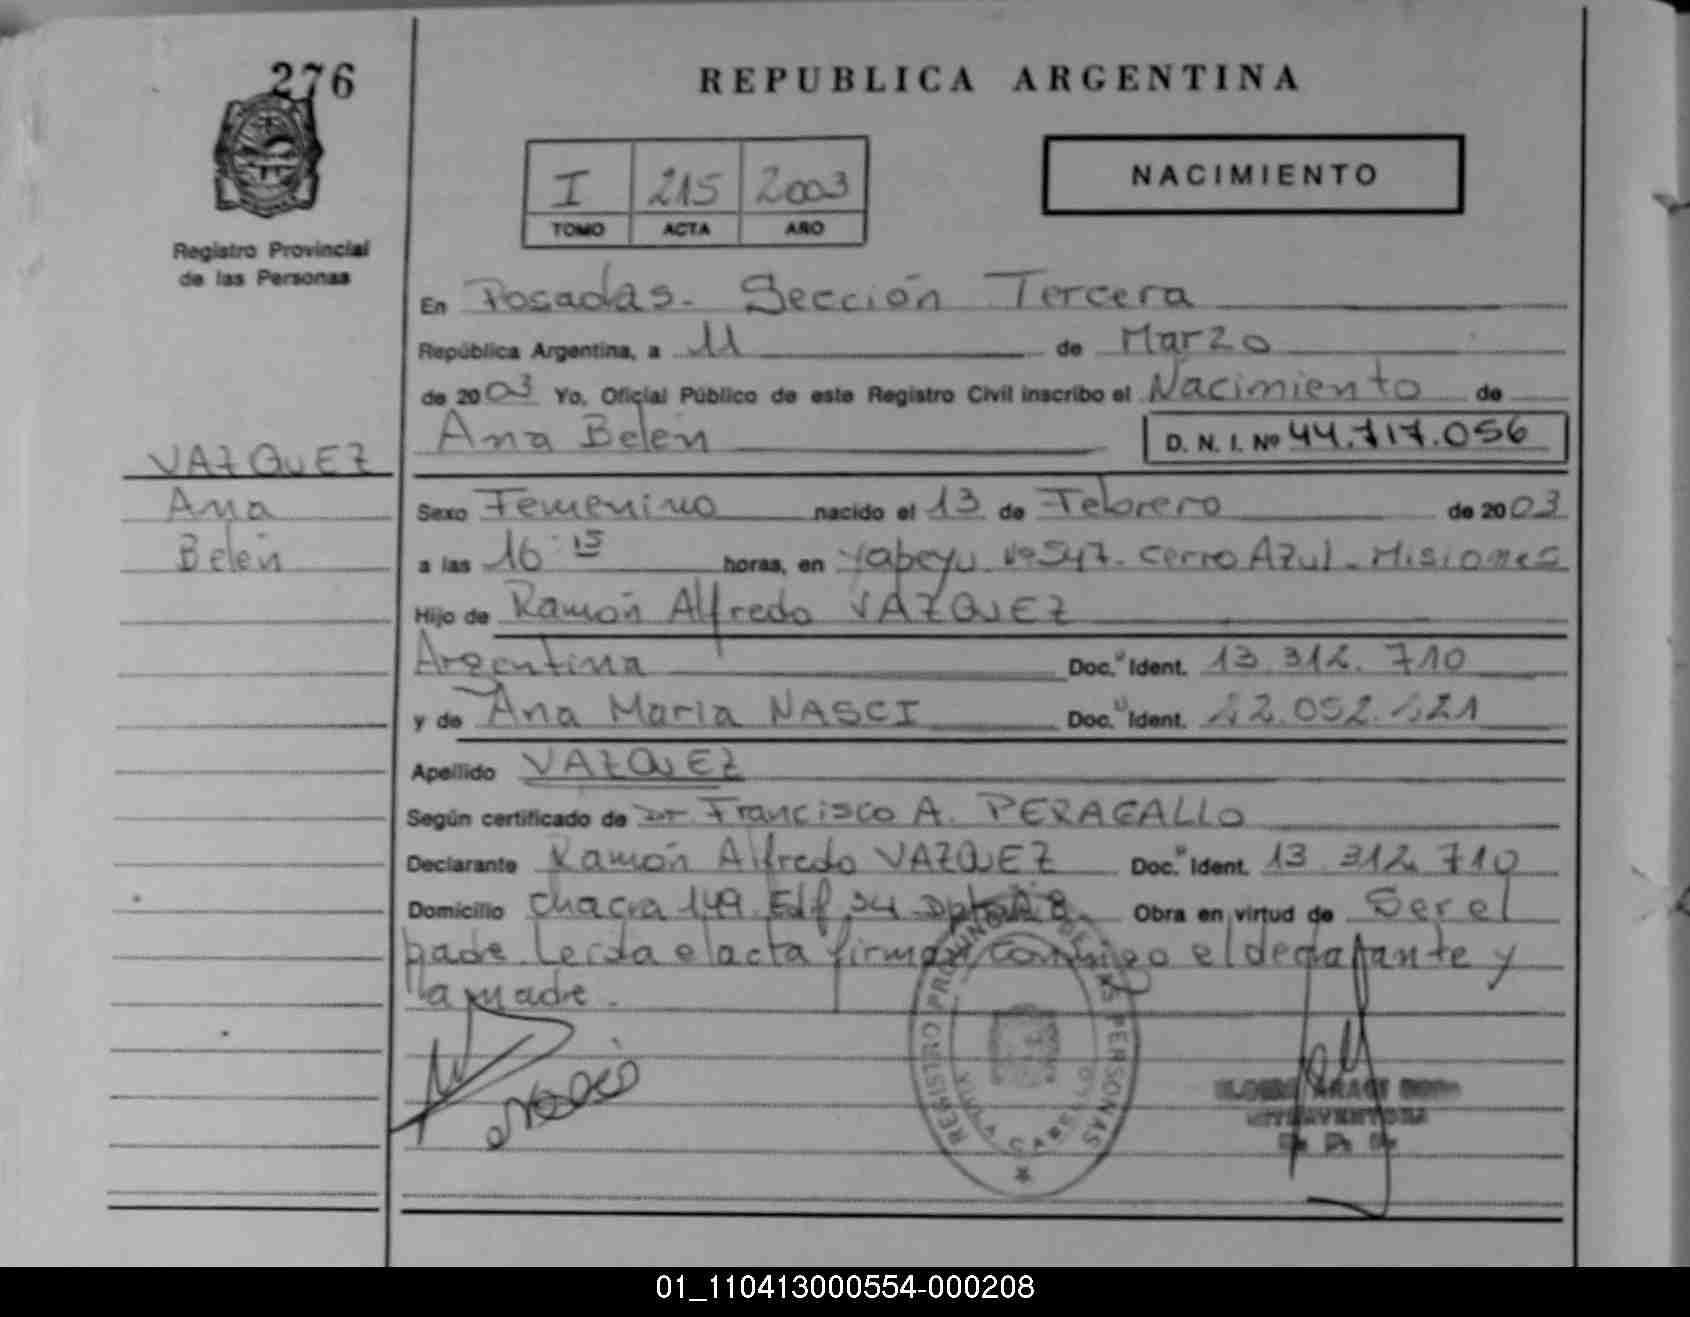 276
REPUBLICA ARGENTINA
I 215 2003
TOMO ACTA AÑO
NACIMIENTO
Registro Provincial
de las Personas
En Posadas. Sección Tercera
República Argentina, a 11 de Marzo
de 2003 Yo, Oficial Público de este Registro Civil inscribo el Nacimiento de
Ana Belén D. N. I. Nº 44.717.056
VAZQUEZ
Ana
Belén
Sexo Femenino nacido el 13 de Febrero de 2003
a las 16:15 horas, en Yapeyu Nº 547. Cerro Azul - Misiones
Hijo de Ramón Alfredo VAZQUEZ
Argentina Doc. Ident. 13.312.710
y de Ana Maria NASCI Doc. Ident. 
Apellido VAZQUEZ
Según certificado de Dr. Francisco A. PERAGALLO
Declarante Ramón Alfredo VAZQUEZ Doc. Ident. 13.312.710
Domicilio chacra 149. Edf 34 Obra en virtud de Ser el
padre. Leida el acta firman conmigo el declarante y
la madre.
REGISTRO PROVINCIAL DE LAS PERSONAS
INTERVENTORA
01_110413000554-000208